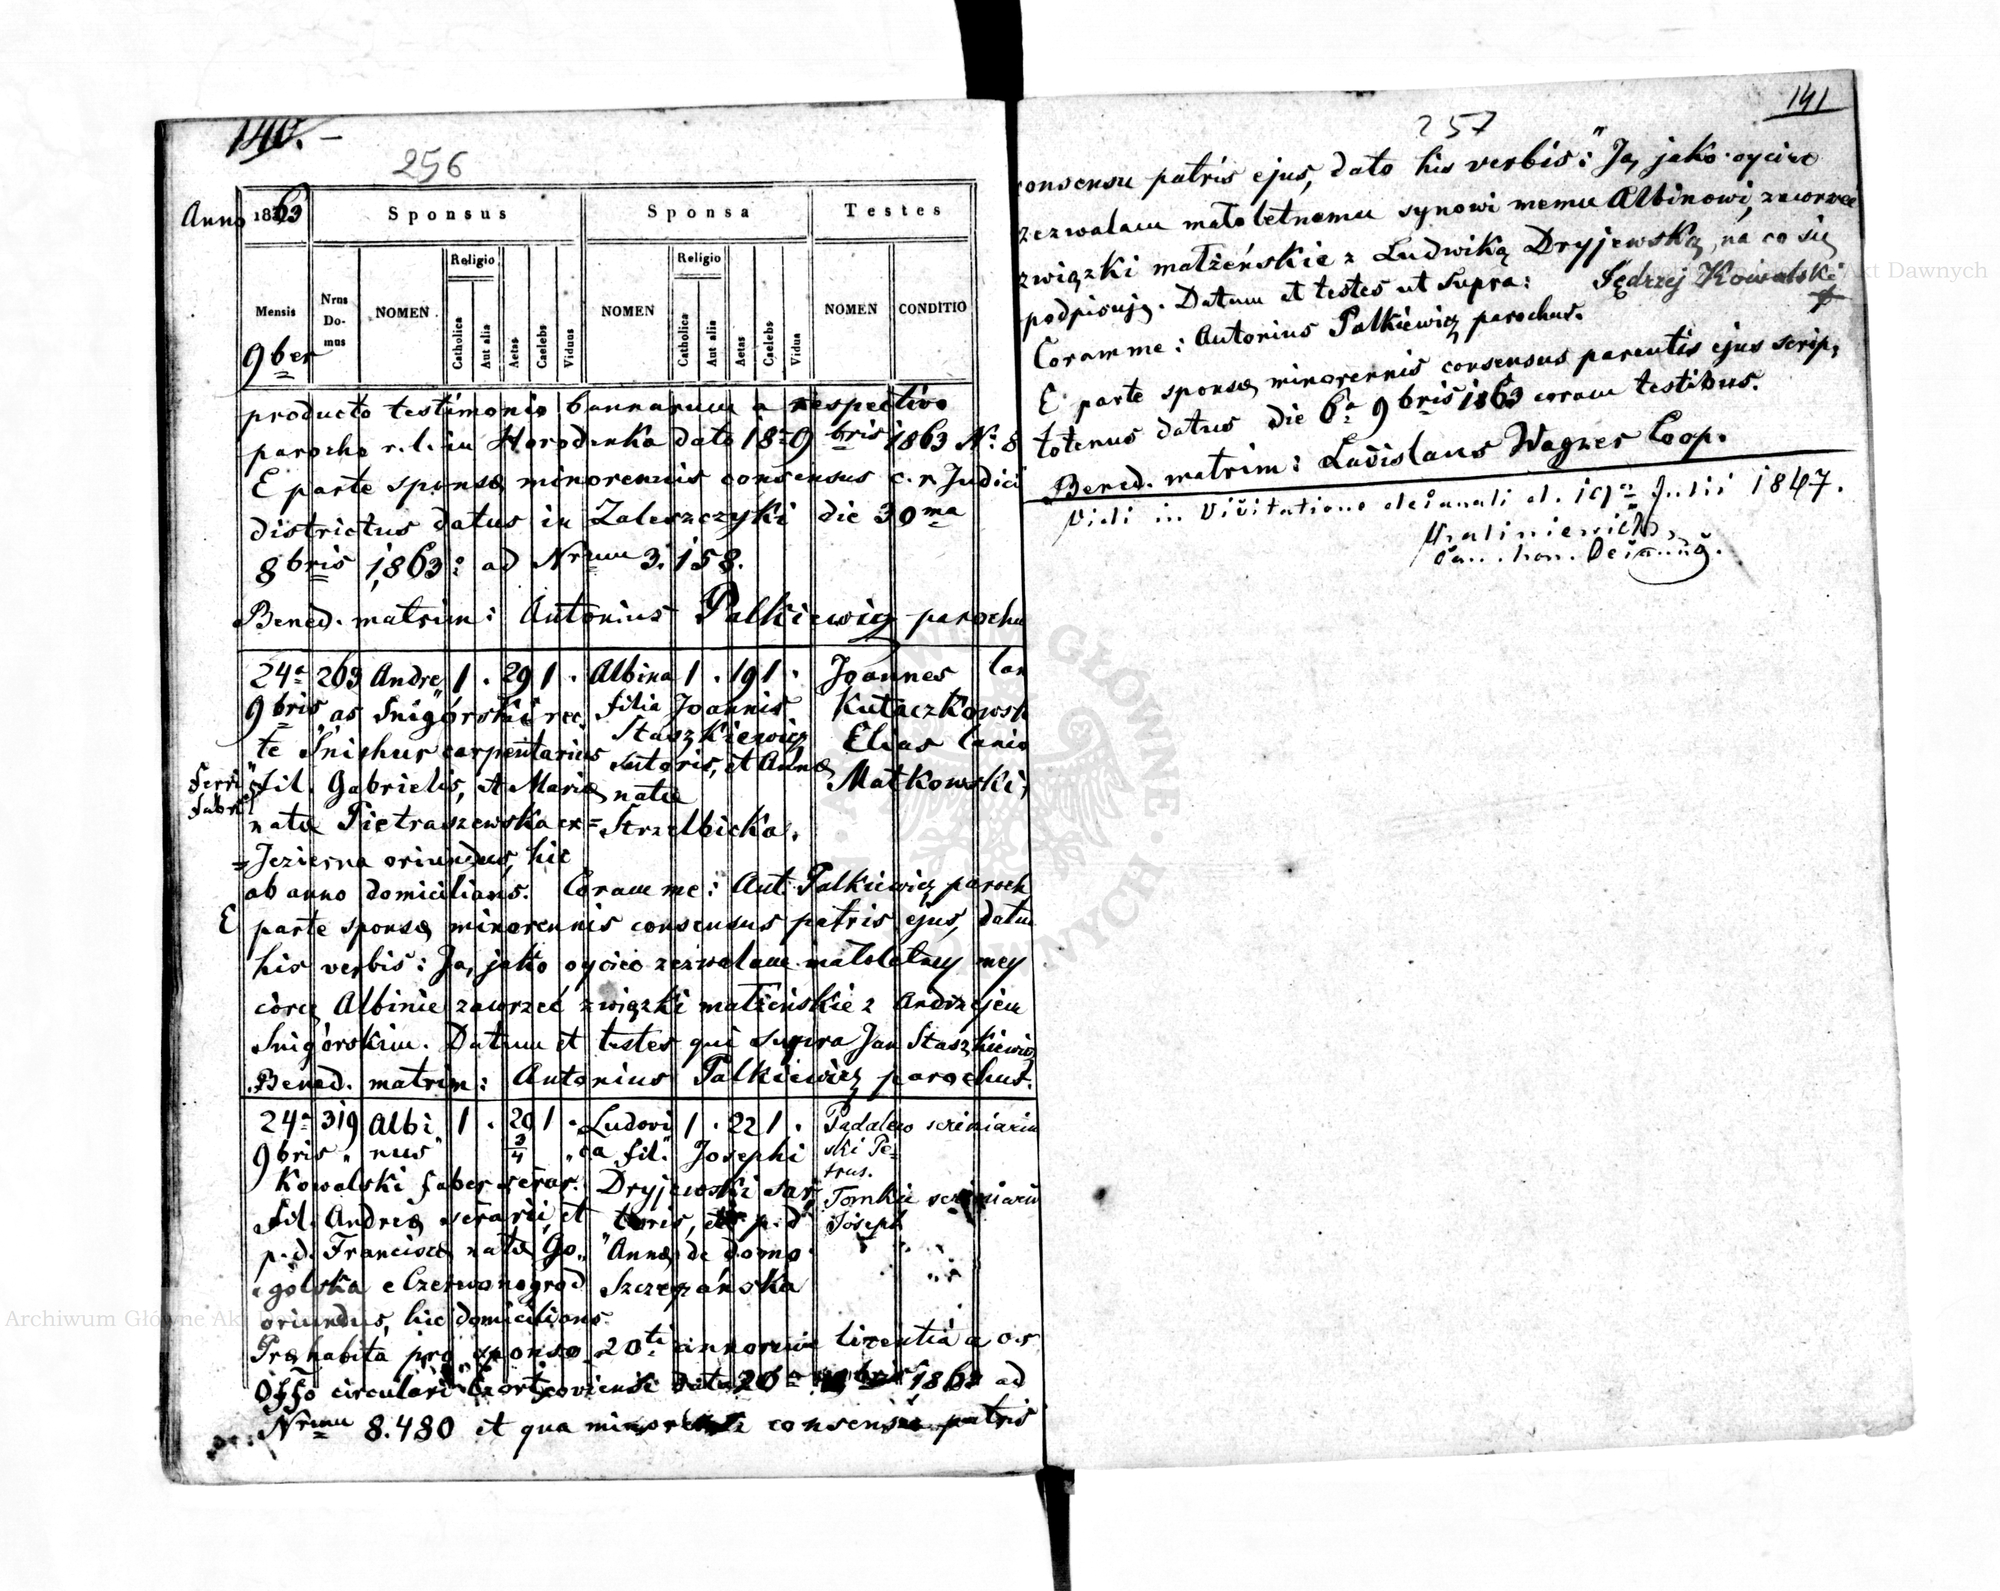 140. –
256
Anno 1863 Sponsus Sponsa Testes
Religio Religio
Mensis Nrus Do- mus NOMEN Catholica Aut alia Aetas Caelebs Viduus NOMEN Catholica Aut alia Aetas Caelebs Vidua NOMEN CONDITIO
9ber
producto testimonio bannarum a respectivo
parocho r. l. in Horodenka dato 18ª 9bris 1863 Nº 8
E parte sponsæ minorennis consensus c. r. Judicii
districtus datus in Zaleszczyki die 30ma
8bris 1863: ad Nrum 3.158.
Bened. matrim: Antonius Palkiewicz parochu
24ª 263 Andre 1 . 29 1 . Albina 1 . 19 1 . Joannes lan
9bris „as Snigórski rec filia Joannis Kutaczkowsk
te Snihur carpentarius Staszkiewicz Elias lanio
Ferri fabri fil. Gabrielis, et Mariæ sutoris, et Annæ Matkowski,
natæ Pietraszewska ex= natæ Strzelbicka.
=Jezierna oriundus, hic
ab anno domicilians. Coram me: Ant. Palkiewicz paroch
E parte sponsæ minorennis consensus patris ejus, datum
his verbis: Ja, jako oyciec zezwalam małoletney mey
córcę Albinie zawrzeć związki małżeńskie z Andrzejem
Snigórskim. Datum et testes qui supra Jan Staszkiewicz
Bened. matrim: Antonius Palkiewicz parochus.
24ª 319 Albi 1 . 20 3/4 1 . Ludovi 1 . 22 1 . Padalew scriniariu
9bris „ nus „ca fil. Josephi ski Pe- trus.
Kowalski faber serar. Dryjewski sar Tomkie scriniariu
fil. Andreæ serarii, et toris, et p. d. Joseph
p. d. Franciscæ natæ Go„ Annæ de domo
golska e Czerwonogrod Szczepańska
oriundus, hic domicilians
Præhabita pro sponso 20ti annorum licentia a c. r.
Offo circulari Czortkoviensi data 26ª 1863 ad
Nrum 8.480 et qua minorenni consensu patris
141
257
consensu patris ejus, dato his verbis: "Ja, jako oyciec
zezwalam małoletnemu synowi memu Albinowi, zawrzeć
związki małżeńskie z Ludwiką Dryjewską, na co się
podpisuję. Datum et testes ut supra: Jędrzej Kowalski
Coram me: Antonius Palkiewicz parochus.
E parte sponsæ minorennis consensus parentis ejus scrip„
totenus datus die 6ª 9bris 1863 coram testibus.
Bened. matrim: Ladislaus Wagner Coop.
Vidi in Visitatione decanali d. 19ª Julii 1847.
Archiwum Główne Akt Dawnych